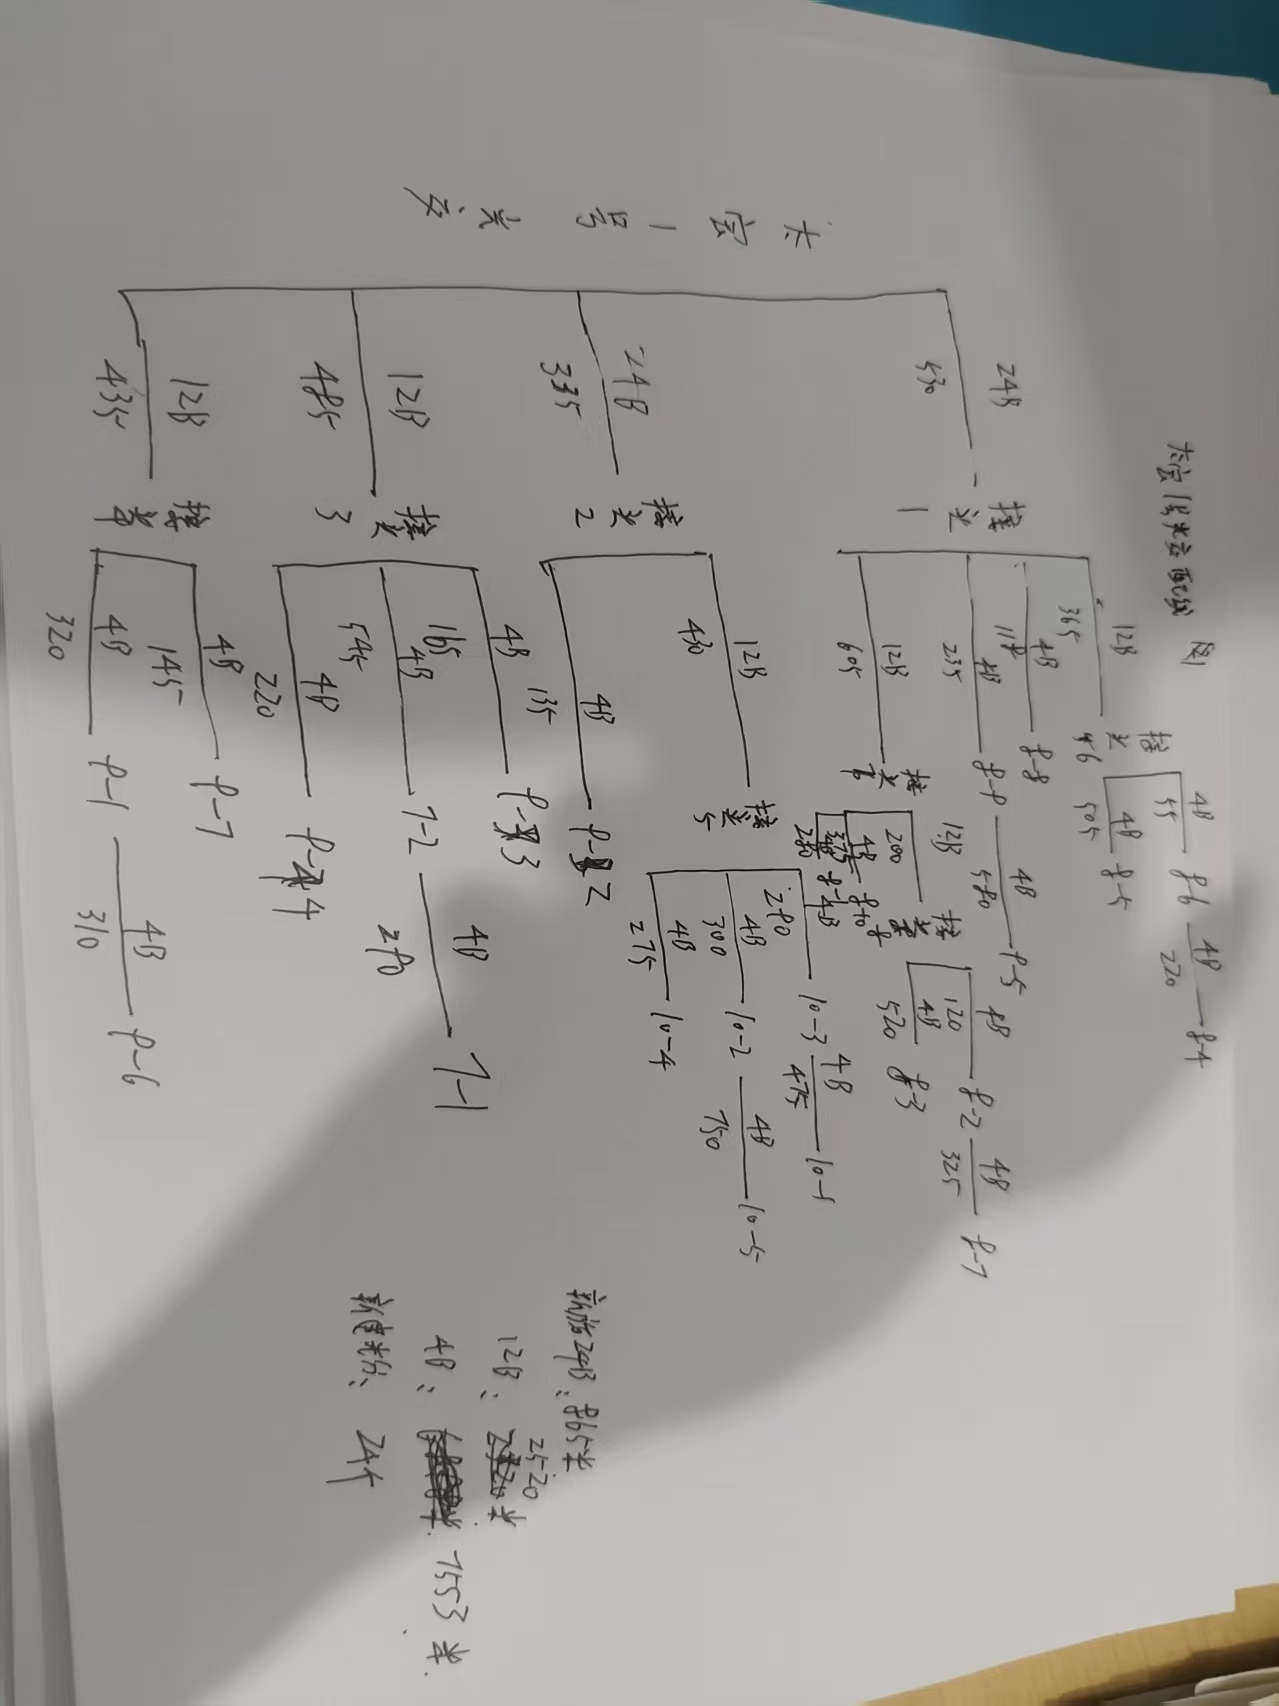 大宫1号光交配线图
大宫1号光交
24B
530
接头1
12B
365
接头6
4B
55
8-6
4B
220
8-4
4B
505
8-5
4B
8-8
4B
235
8-9
4B
580
9-5
12B
605
接头
12B
200
接头
4B
120
8-2
4B
325
8-7
4B
520
8-3
4B
4B
280
24B
335
接头2
12B
430
接头5
4B
280
10-3
4B
475
4B
300
10-2
4B
750
10-5
4B
275
10-4
4B
9-2
12B
485
接头3
4B
135
9-3
165
4B
545
7-2
4B
290
7-1
4B
220
9-4
12B
435
接头
4B
145
9-7
4B
320
9-1
4B
310
9-6
新放24B:865米
12B:2520米
4B:7553米
新建光分:24个